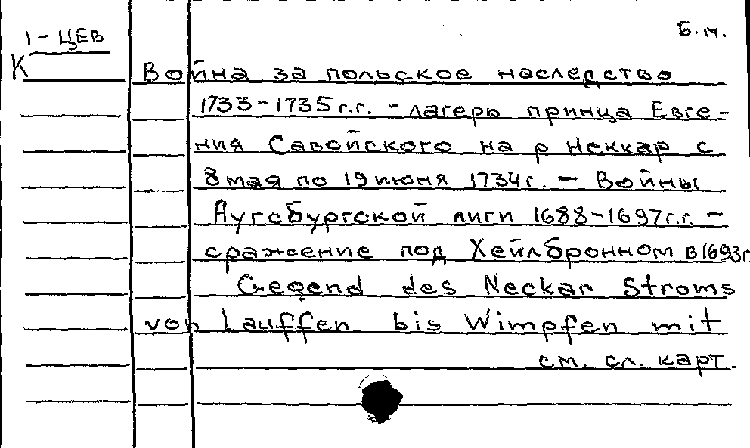 1 - ЦЕВ
Б.м.
К
Война за польское наследство
1733-1735 г.г. - лагерь принца Евге-
ния Савойского на р Неккар с
8 мая по 19 июня 1734г. - Войны
Аугсбургской лиги 1688-1697г.г. -
сражение под Хейлбронном в 1693г
Gegend des Neckar Stroms
von Lauffen bis Wimpfen mit
см. сл. карт.